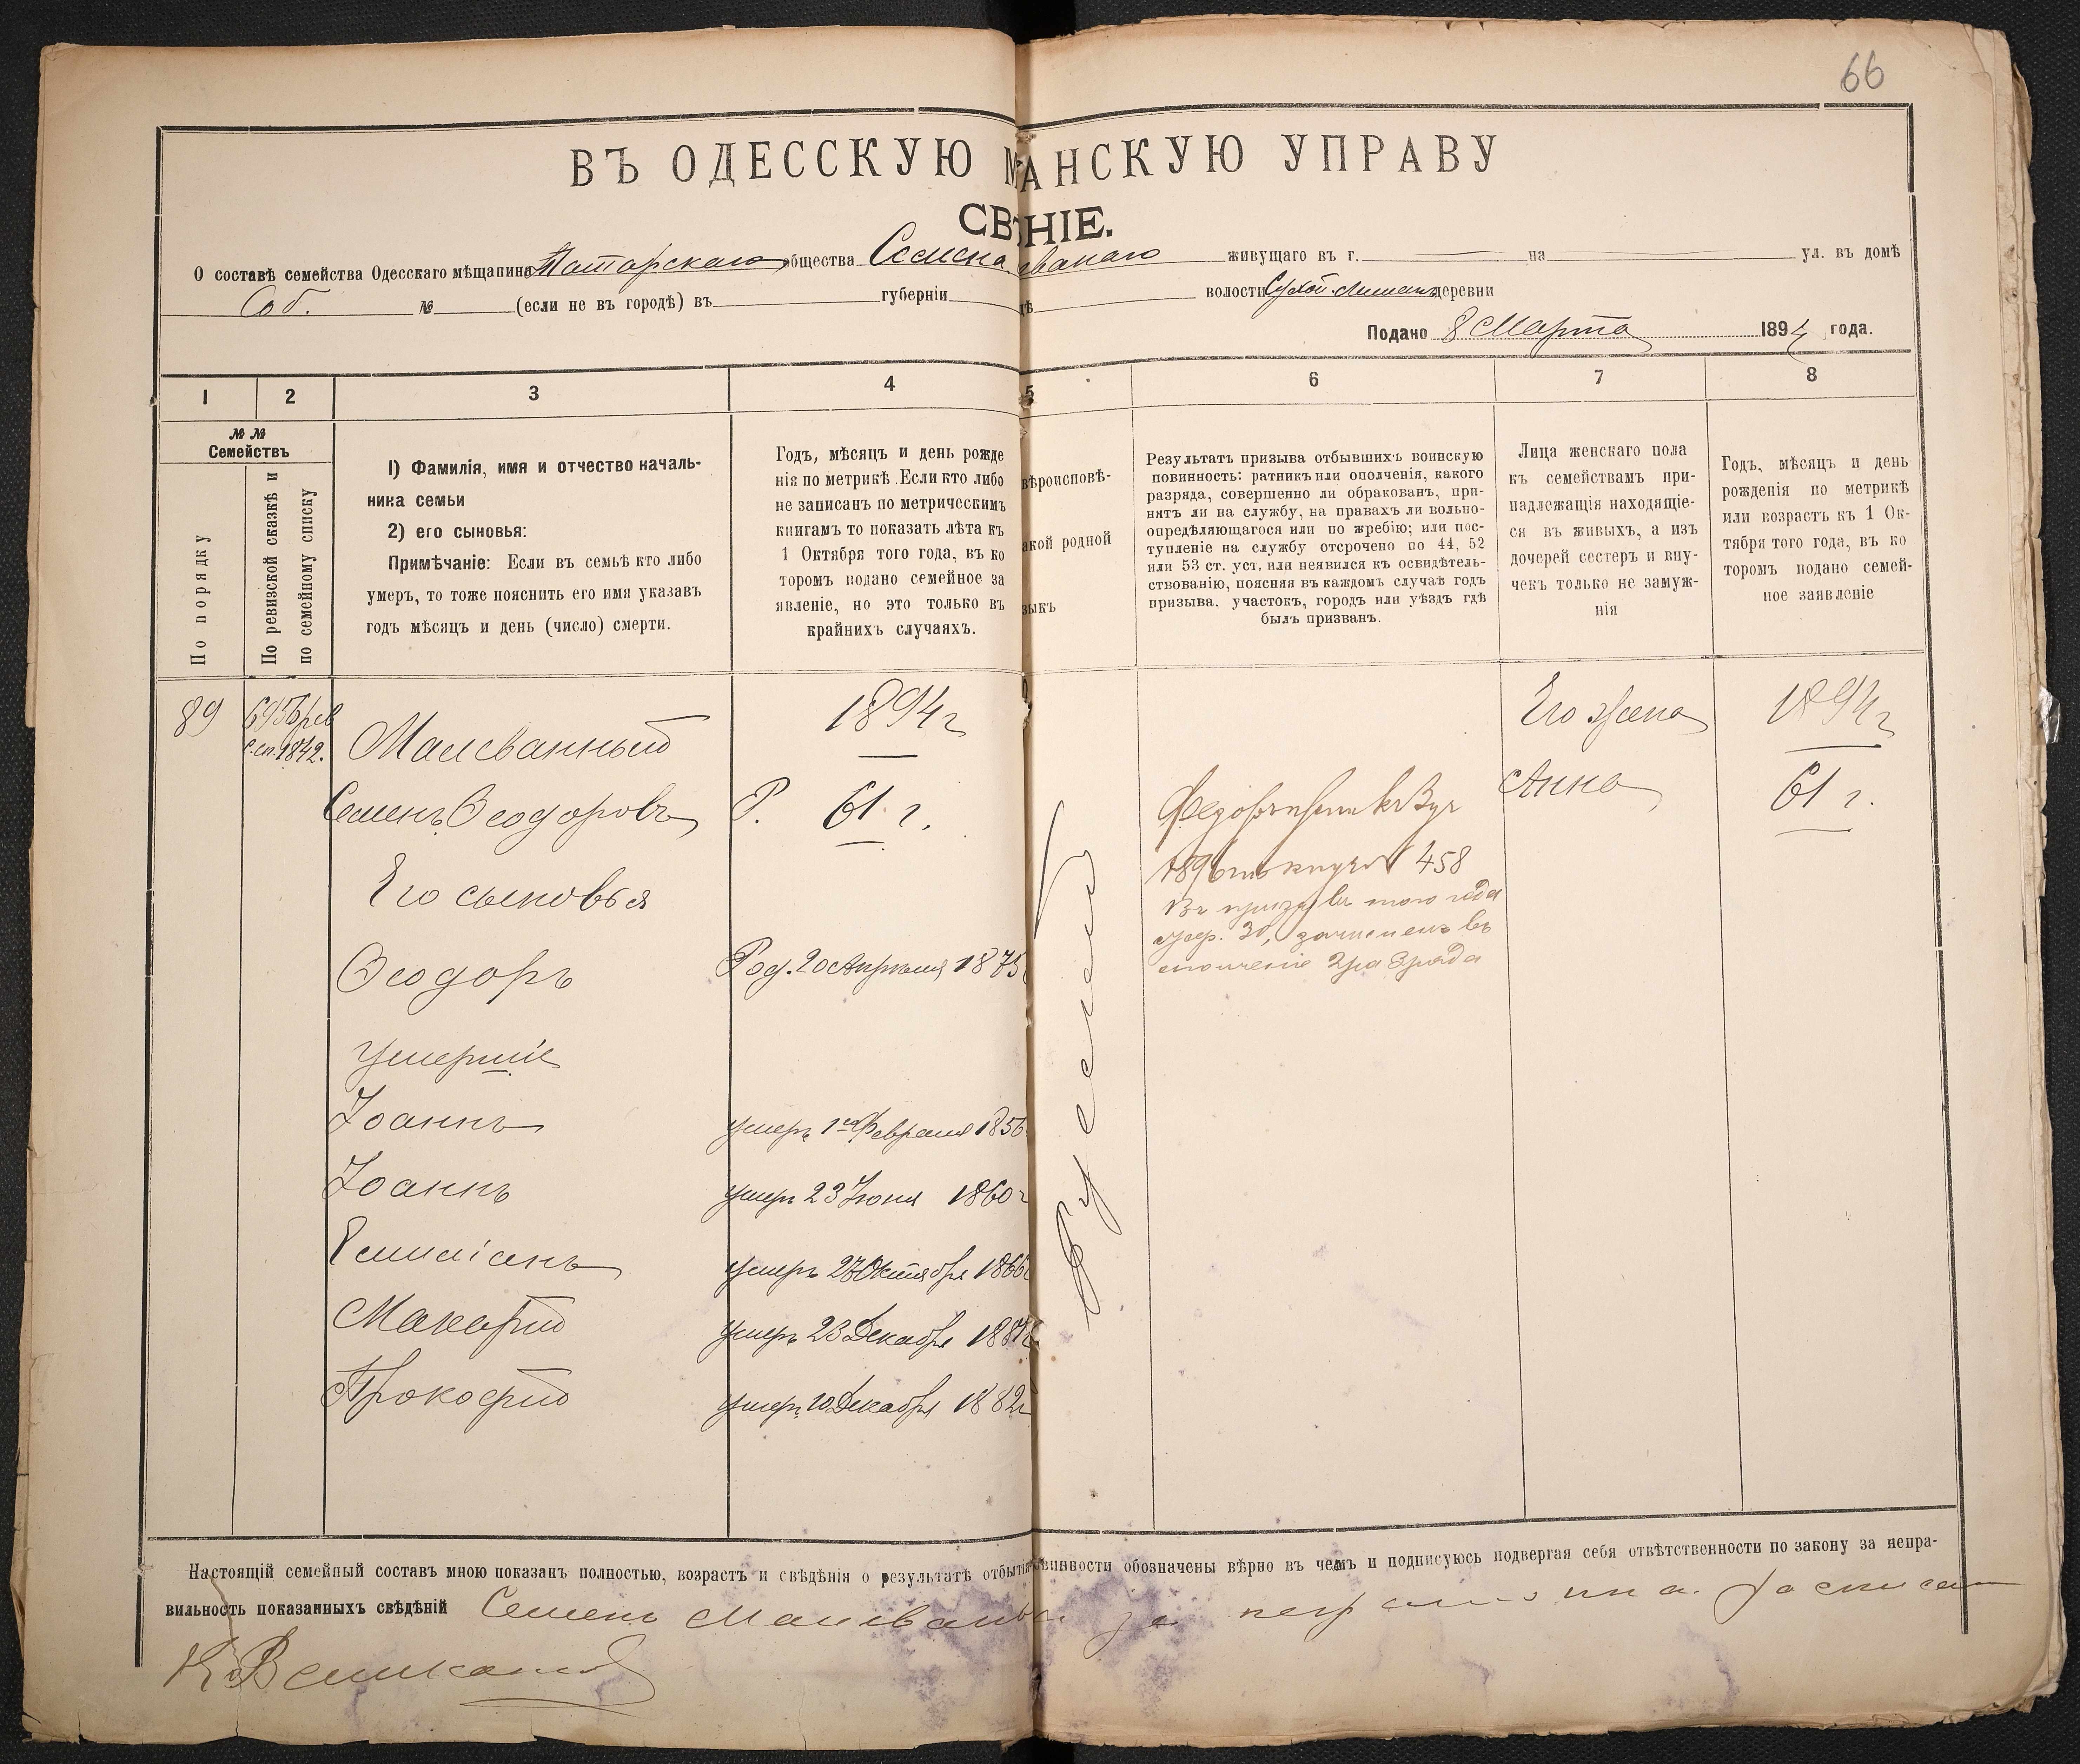 66
ВЪ ОДЕССКУЮ М АНСКУЮ УПРАВУ
СВ НІЕ.
О составѣ семейства Одесскаго мѣщанина Татарскаго общества Семена ванаго живущаго въ г. на ул. въ домѣ
Соб. № (если не въ городѣ) въ губерніи дѣ волости Сухой-Лиманъ деревни
Подано 8 Марта 1894 года.
1 2 3 4 5 6 7 8
№ №
Семействъ
По порядку
По ревизской сказкѣ и
по семейному списку
1) Фамилія, имя и отчество началь-
ника семьи
2) его сыновья:
Примѣчаніе: Если въ семьѣ кто либо
умеръ, то тоже пояснить его имя указавъ
годъ мѣсяцъ и день (число) смерти.
Годъ, мѣсяцъ и день рожде
нія по метрикѣ. Если кто либо
не записанъ по метрическимъ
книгамъ то показать лѣта къ
1 Октября того года, въ ко
торомъ подано семейное за
явленіе, но это только въ
крайнихъ случаяхъ.
вѣроисповѣ-
акой родной
зыкъ
Результатъ призыва отбывшихъ воинскую
повинность: ратникъ или ополченія, какого
разряда, совершенно ли обракованъ, при-
нятъ ли на службу, на правахъ ли вольно-
опредѣляющагося или по жребію; или пос-
тупленіе на службу отсрочено по 44, 52
или 53 ст. уст, или неявился къ освидѣтель-
ствованію, поясняя въ каждомъ случаѣ годъ
призыва, участокъ, городъ или уѣздъ гдѣ
былъ призванъ.
Лица женскаго пола
къ семействамъ при-
надлежащія находящіе-
ся въ живыхъ, а изъ
дочерей сестеръ и вну-
чекъ только не замуж-
нія
Годъ, мѣсяцъ и день
рожденія по метрикѣ
или возрастъ къ 1 Ок-
тября того года, въ ко
торомъ подано семей-
ное заявленіе
89
с.сп. 1842.
Малеванный
1894 г
Его жена
1894 г
Семенъ Ѳеодоровъ
Р. 61 г.
Анна
61 г.
Его сыновья
Ѳеодоръ
Род. 20 Апрѣля 1875
1896 458
Въ того года
зачисленъ въ
ополченіе 2 разряда
умершіе
Іоаннъ
умеръ 1го Февраля 1856
Іоаннъ
умеръ 23 Іюня 1860 г
Емиліанъ
умеръ 27 Октября 1866
Макарій
умеръ 23 Декабря 188
Прокофій
умеръ 10 Декабря 1882 г
Русскій
Настоящій семейный составъ мною показанъ полностью, возрастъ и свѣдѣнія о результатѣ отбытія винности обозначены вѣрно въ чемъ и подписуюсь подвергая себя отвѣтственности по закону за непра-
вильность показанныхъ свѣдѣній Семенъ Малеваны за